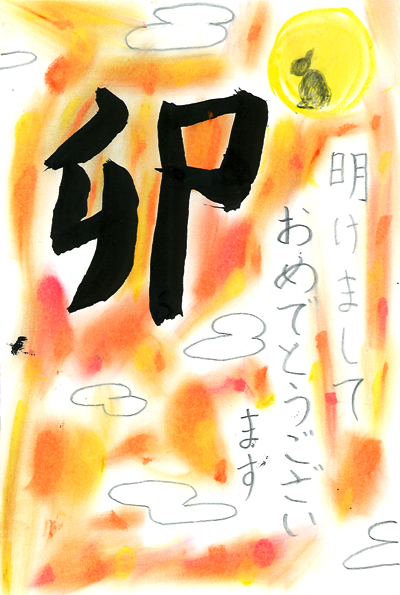 卯
明けまして
おめでとうござい
ます